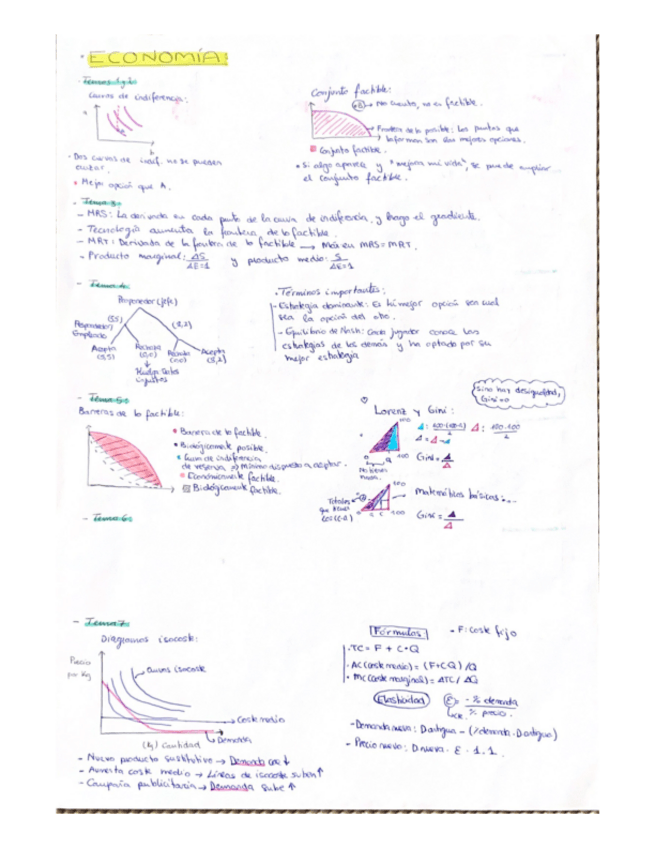 · ECONOMÍA:
· Temas 1 y 2
Curvas de indiferencia:
A
· Dos curvas de indif. no se pueden
cruzar.
· Mejor opción que A.
Conjunto factible:
→ No cuenta, no es factible.
→ Frontera de lo posible: Los puntos que
la forman son las mejores opciones.
Conjunto factible.
· Si algo aparece y "mejora mi vida", se puede ampliar
el conjunto factible.
- Tema 3:
- MRS: La derivada en cada punto de la curva de indiferencia, y luego el gradiente.
- Tecnología aumenta la frontera de lo factible.
- MRT: Derivada de la frontera de lo factible → MRS = MRT.
- Producto marginal: ΔS / ΔE=1 y producto medio: S / ΔE=1
- Tema 4:
Proponedor (jefe)
(5,5) (8,2)
Respondedor/
Empleado
Acepta Rechaza Rechaza Acepta
(5,5) (0,0) (0,0) (8,2)
Huelga
injustos
· Términos importantes:
- Estrategia dominante: Es la mejor opción sea cual
sea la opción del otro.
- Equilibrio de Nash: Cada jugador conoce las
estrategias de los demás y ha optado por su
mejor estrategia
- Tema 5:
Barreras de lo factible:
· Barrera de lo factible.
· Biológicamente posible.
· Curva de indiferencia
de reserva, mínimo dispuesto a aceptar.
Económicamente factible.
Biológicamente factible.
si no hay desigualdad,
Gini = 0
Lorenz y Gini:
100
100
100·100 / 2
Gini =
100
100
Matemáticas básicas:...
Gini =
- Tema 6:
- Tema 7
Diagramas isocoste:
Precio
por Kg
Curvas isocoste
Coste medio
Demanda
(Kg) Cantidad
- Nuevo producto sustitutivo → Demanda cae ↓
- Aumenta coste medio → Líneas de isocoste suben ↑
- Campaña publicitaria → Demanda sube ↑
Fórmulas - F: coste fijo
· TC = F + C·Q
· AC (coste medio) = (F+CQ)/Q
· MC (coste marginal) = ΔTC/ΔQ
Elasticidad ε = - % demanda / % precio.
- Demanda nueva: D antigua - (% demanda · D antigua)
- Precio nuevo: D nueva · ε · 1.1.